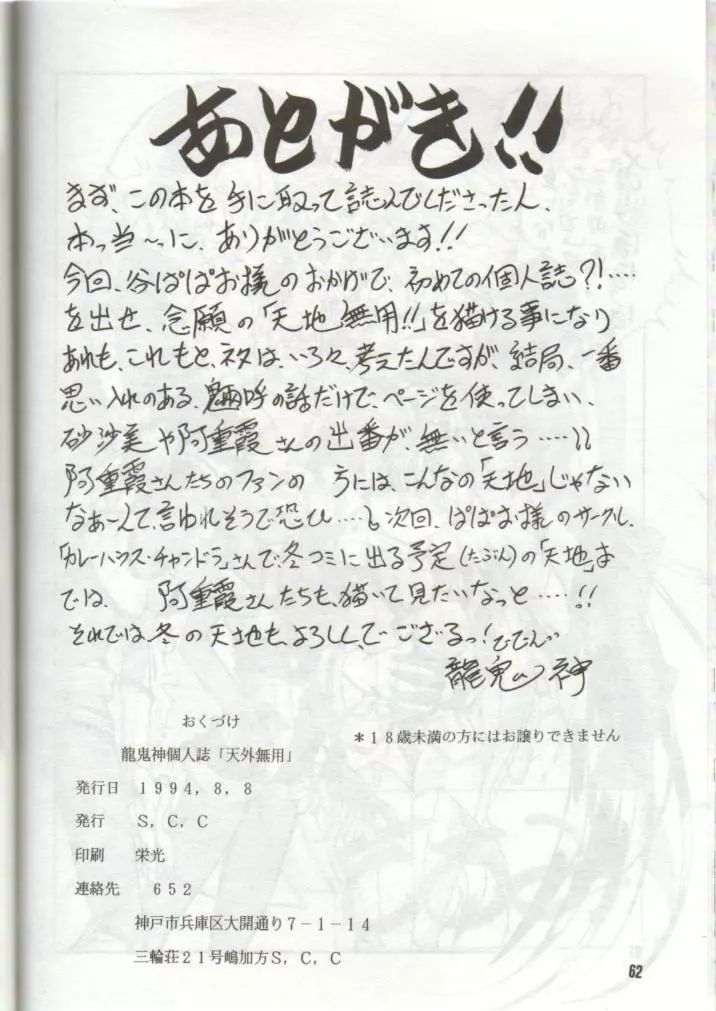 あとがき!!
まず、この本を手に取って読んでくださった人、
本っ当〜っに、ありがとうございます!!
今回、谷ぱぱお様のおかげで、初めての個人誌?!‥‥
を出せ、念願の「天地無用!!」を描ける事になり
あれも、これもと、ネタは、いろ々、考えたんですが、結局、一番
思い入れのある、魎呼の話だけで、ページを使ってしまい、
砂沙美や阿重霞さんの出番が、無いと言う‥‥
阿重霞さんたちのファンの 方には、こんなの「天地」じゃない
なぁーんて、言われそうで恐ひ‥‥で次回、ぱぱお様のサークル、
「カレーハウス・チャンドラ」さんで、冬コミに出る予定(たぶん)の「天地」本
では、 阿重霞さんたちも、描いて見たいなっと‥‥!!
それでは冬の天地も、よろしく、でござるっ!ででん
龍鬼神
おくづけ
*18歳未満の方にはお譲りできません
龍鬼神個人誌「天外無用」
発行日 1994,8,8
発行 S,C,C
印刷 栄光
連絡先 652
神戸市兵庫区大開通り7-1-14
三輪荘21号嶋加方S,C,C
62